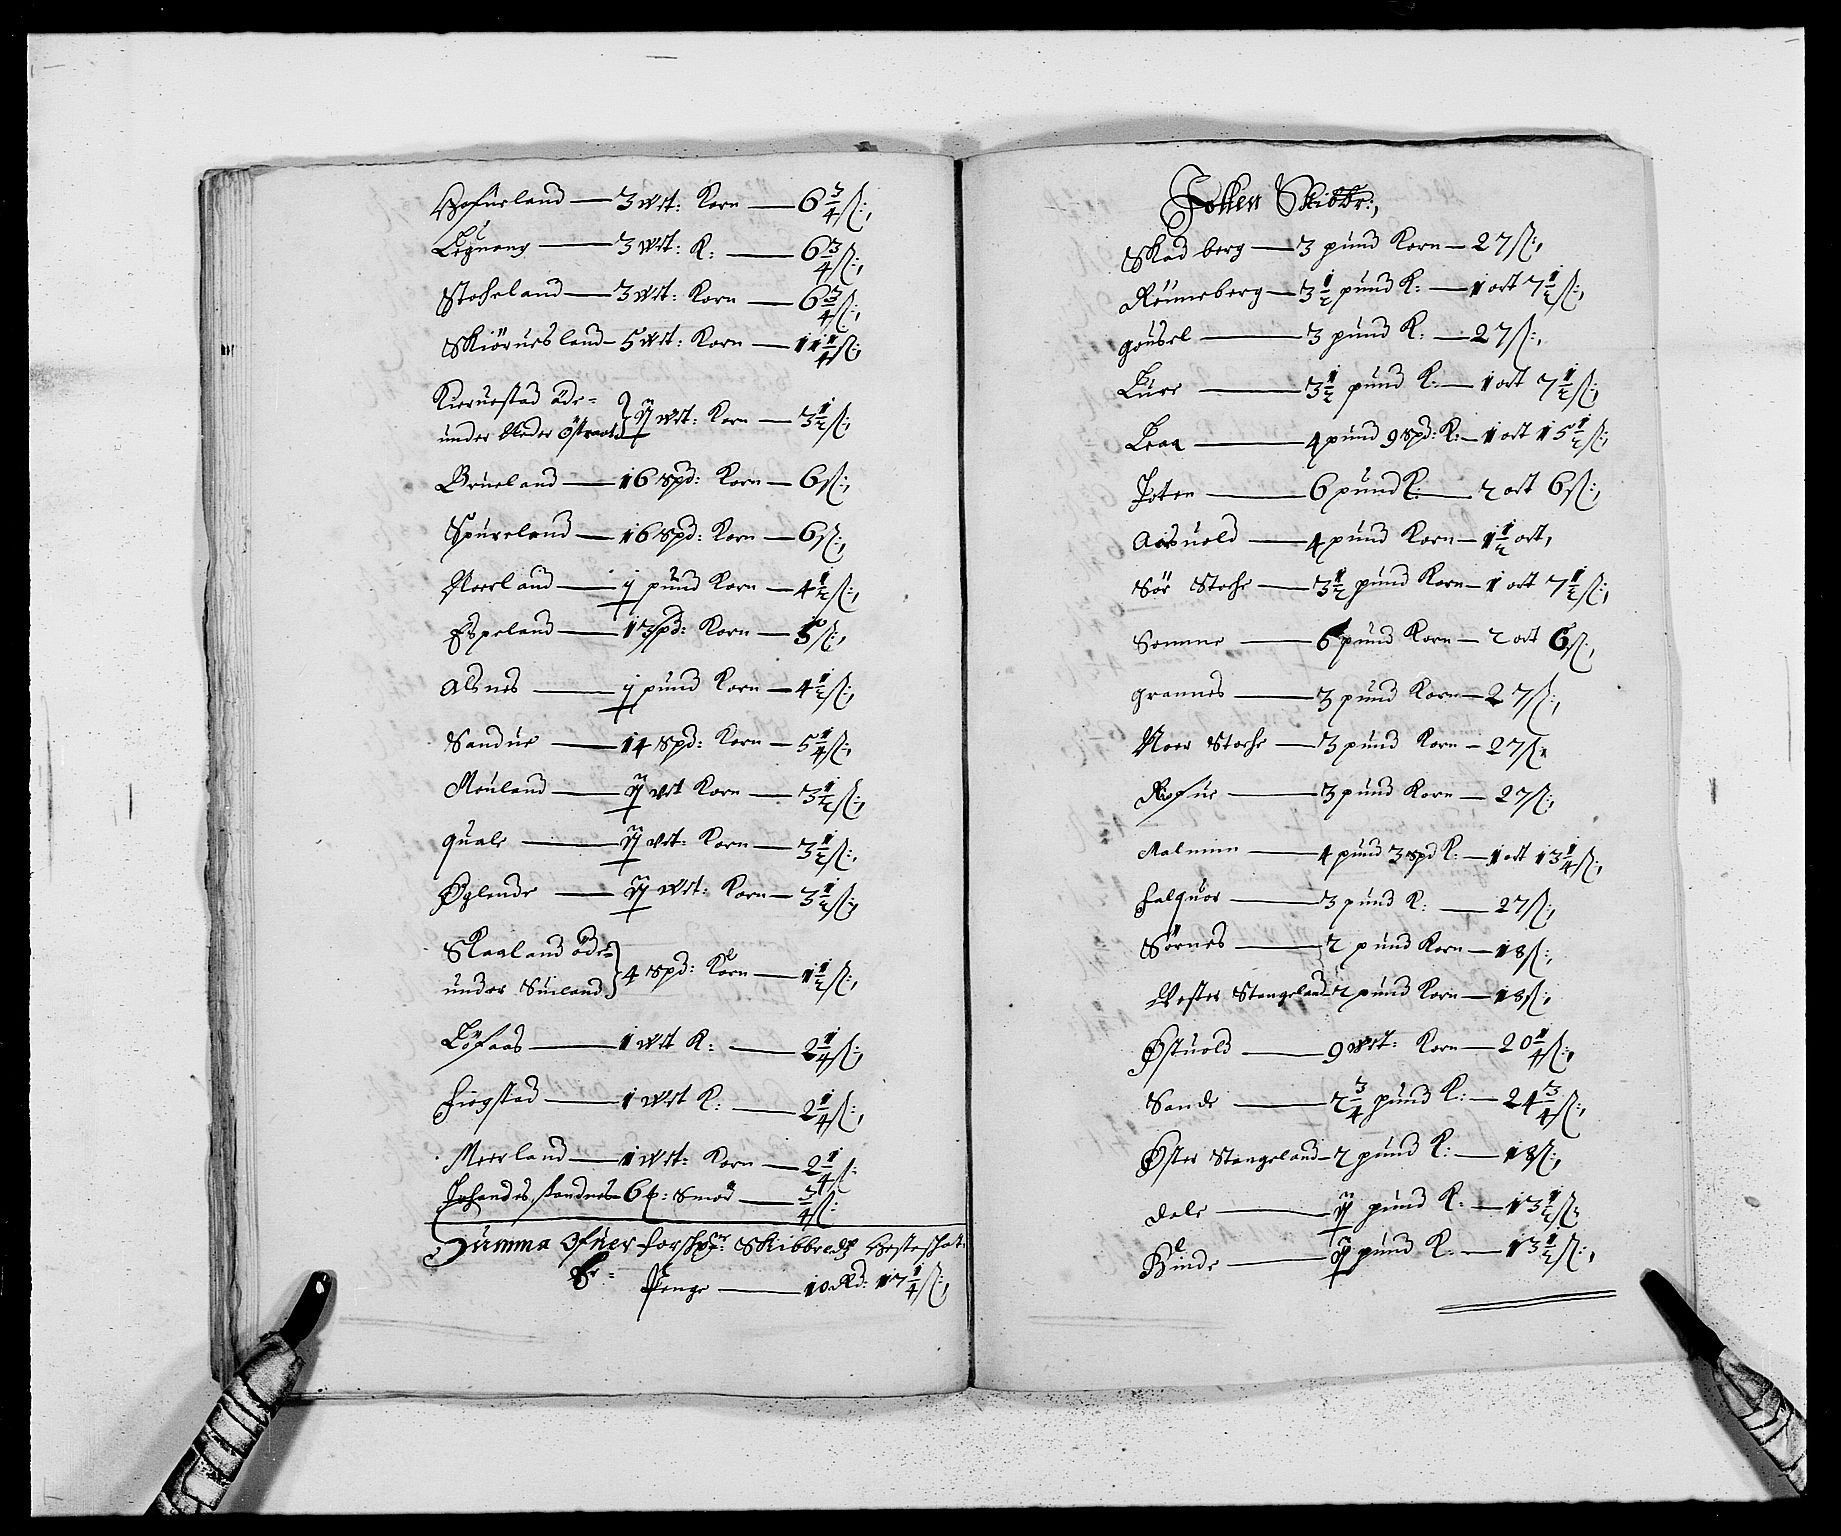 Hofueland — 3 wet: Korn — 6 3/4 ß:,
Lignong — 3 wet: K: — 6 3/4 ß:,
Stocheland — 3 wet: Korn — 6 3/4 ß:,
Skiöruesland — 5 wet: Korn — 11 1/4 ß:,
Kieruestad öde
under Neder Östraad } ij wet: Korn — 3 1/2 ß:,
Brueland — 16 Spd: Korn — 6 ß:,
Spureland — 16 Spd: Korn — 6 ß:,
Norland — j pund Korn — 4 1/2 ß:,
Espeland — 13 spd: Korn — 5 ß:,
Alsnes — j pund Korn — 4 1/2 ß:,
Sandue — 14 Spd: Korn — 5 1/4 ß:,
Mouland — ij wet Korn — 3 1/2 ß:,
Quale — ij wet: Korn — 3 1/2 ß:,
Øglende — ij wet: Korn — 3 1/2 ß:,
Skaaland öde
under Suiland } 4 Spd: Korn — 1 1/2 ß:,
Löfaas — 1 wet K: — 2 1/4 ß:,
Figstad — 1 wet K: — 2 1/4 ß:,
Meerland — 1 wet: Korn — 2 1/4 ß:
sandnes — 6 : Smör — 3/4 ß:
Summa Ofuer Skibbredß Hesteskat:
Er Penge — 10 Rd: 17 1/4 ß:,
Skibbr:,
Skadberg — 3 pund Korn — 27 ß:,
Rönneberg — 3 1/2 pund K: — 1 ort 7 1/2 ß:,
Gousel — 3 pund K: — 27 ß:,
Lure — 3 1/2 pund K: — 1 ort 7 1/2 ß:,
Lraa — 4 pund 9 Spd: K: — 1 ort 15 1/2 ß:,
Joten — 6 pund K: — 2 ort 6 ß:,
Aasuold — 4 pund Korn — 1 1/2 ort,
Sör Stoche — 3 1/2 pund Korn — 1 ort 7 1/2 ß:,
Somme — 6 pund Korn — 2 ort 6 ß:,
Grannes — 3 pund Korn — 27 ß:,
Noer Stoche — 3 pund Korn — 27 ß:
— 3 pund Korn — 27 ß:,
Malmim — 4 pund 3 spd K: — 1 ort 13 1/4 ß:,
Halquor — 3 pund K: — 27 ß:,
Sörnes — 2 pund Korn — 18 ß:,
Vester Stangeland — 2 pund Korn — 18 ß:,
Østuold — 9 wet: Korn — 20 1/4 ß:,
Sande — 2 3/4 pund K: — 24 3/4 ß:,
Øster Stangeland — 2 pund K: — 18 ß:,
Dale — ij pund K: — 13 1/2 ß:
Blinde — ij pund K: — 13 1/2 ß:,